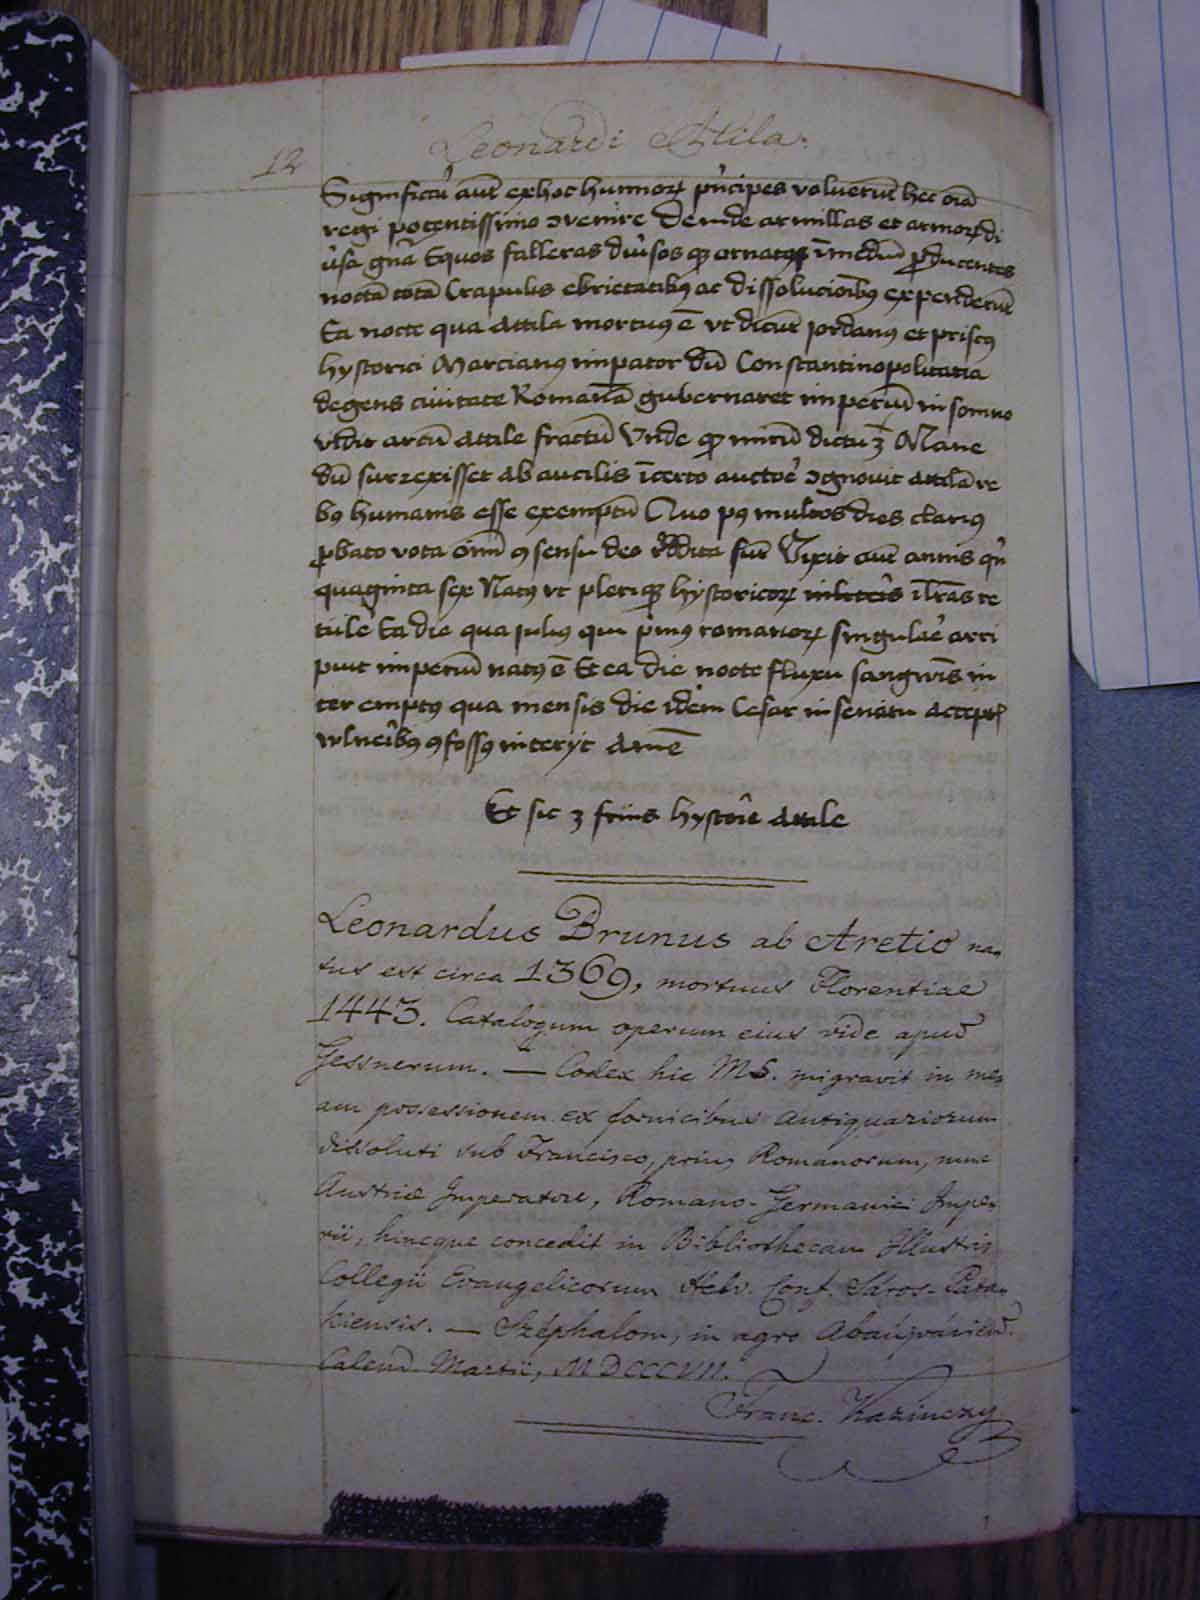 Leonardi Attila.
12
Significũ aut̃ ex hoc hunnoꝝ pñcipes voluerũt hec oĩa
regi potentissimo ↄvenire Deinde armillas et armoꝝ di
ũsa gñа Equos falleras diũsos qꝫ ornatꝯ ĩ mediũ ꝓducentes
noctẽ totã Crapulis ebrietatibꝯ ac dissolucioĩbꝯ expenderũt
Ea nocte qua Attila mortuꝯ ẽ vt dicũt Jordanꝯ et priscꝯ
hystorici Marcianꝯ impator dũ Constantinopolitana
degens civitate Romanã gubernaret imperiũ in somno
vidit arcũ Attile fractũ Vnde qꝫ mirũ dictu ꝫ Mane
dũ surrexisset ab aucilis ĩcerto auctoẽ ↄgnovit Attilã re
bꝯ humanis esse exemptũ Quo pꝯ multos dies clariꝯ
ꝓbato vota õim̃ ꝯsensu deo r̃ddita sũt Vixit aut̃ annis qñ
quaginta sex Natꝯ vt pleriqꝫ hystoricoꝝ ĩ lr̃as re
tule᷑ Ea die qua Juliꝯ qui pͥmꝯ romanoꝝ singularẽ arri
puit imperiũ natꝯ ẽ Et ea die nocte fluxu sangwĩs in
ter emptꝯ qua mensis die idem Cesar in senatu accept᷑
vulneribꝯ ꝯfossꝯ interijt Amẽ
Et sic ꝫ finis hystorie Attile
Leonardus Brunus ab Aretio na-
tus est circa 1369, mortuus Florentiae
1443. Catalogum operum eius vide apud
Gessnerum. — Codex hic MS. migravit in me-
am possessionem ex fornicibus Antiquariorum
dissoluti sub Francisco, prius Romanorum, nunc
Austriæ Imperatore, Romano-Germanici Impe-
rii, hincque concedit in Bibliothecam Illustris
Collegii Evangelicorum Helv. Conf. Sáros-Pata-
kiensis. — Széphalom, in agro Abaújváriens.
Calend. Martii, MDCCCVII.
Franc. Kazinczy